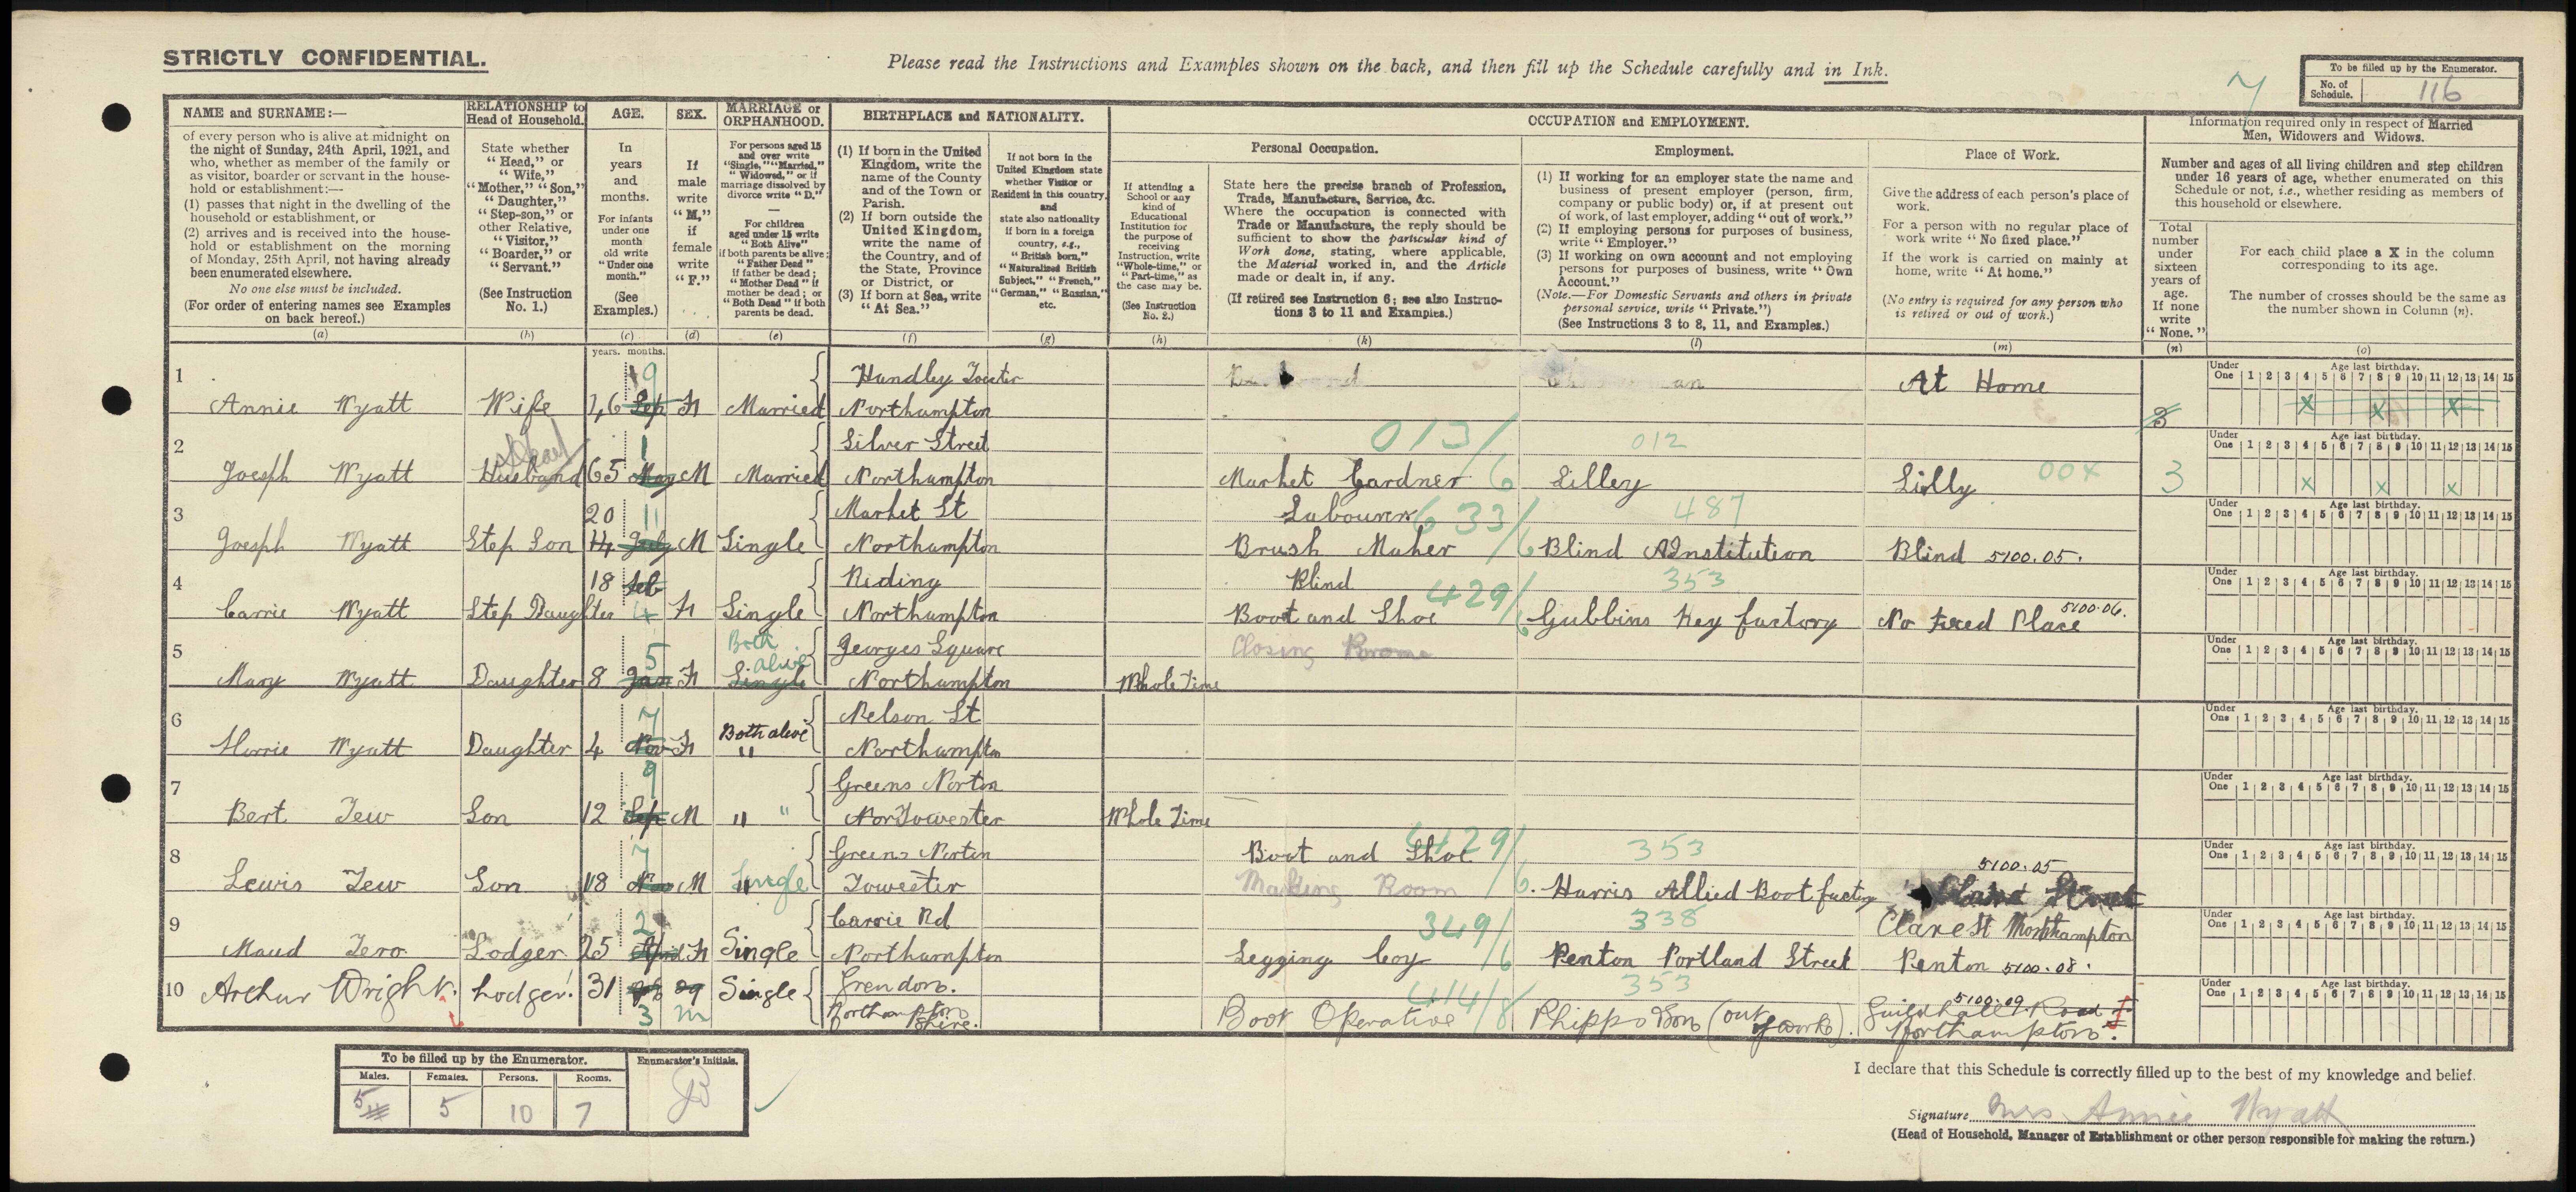 STRICTLY CONFIDENTIAL.
Please read the Instructions and Examples shown on the back, and then fill up the Schedule carefully and in Ink.
To be filled up by the Enumerator.
No. of Schedule. 116
NAME and SURNAME:—
of every person who is alive at midnight on
the night of Sunday, 24th April, 1921, and
who, whether as member of the family or
as visitor, boarder or servant in the house-
hold or establishment:—
(1) passes that night in the dwelling of the
household or establishment, or
(2) arrives and is received into the house-
hold or establishment on the morning
of Monday, 25th April, not having already
been enumerated elsewhere.
No one else must be included.
(For order of entering names see Examples
on back hereof.)
(a)
RELATIONSHIP to
Head of Household.
State whether
"Head," or
"Wife,"
"Mother," "Son,"
"Daughter,"
"Step-son," or
other Relative,
"Visitor,"
"Boarder," or
"Servant."
(See Instruction
No. 1.)
(b)
AGE.
In
years
and
months.
For infants
under one
month
old write
"Under one
month."
(See
Examples.)
(c)
years. months.
SEX.
If
male
write
"M,"
if
female
write
"F."
(d)
MARRIAGE or
ORPHANHOOD.
For persons aged 15
and over write
"Single," "Married,"
"Widowed," or if
marriage dissolved by
divorce write "D."
For children
aged under 15 write
"Both Alive"
if both parents be alive;
"Father Dead"
if father be dead;
"Mother Dead" if
mother be dead; or
"Both Dead" if both
parents be dead.
(e)
BIRTHPLACE and NATIONALITY.
(1) If born in the United
Kingdom, write the
name of the County
and of the Town or
Parish.
(2) If born outside the
United Kingdom,
write the name of
the Country, and of
the State, Province
or District, or
(3) If born at Sea, write
"At Sea."
(f)
If not born in the
United Kingdom state
whether Visitor or
Resident in this country,
and
state also nationality
if born in a foreign
country, e.g.,
"British born,"
"Naturalised British
Subject," "French,"
"German," "Russian,"
etc.
(g)
OCCUPATION and EMPLOYMENT.
If attending a
School or any
kind of
Educational
Institution for
the purpose of
receiving
Instruction, write
"Whole-time," or
"Part-time," as
the case may be.
(See Instruction
No. 2.)
(h)
Personal Occupation.
State here the precise branch of Profession,
Trade, Manufacture, Service, &c.
Where the occupation is connected with
Trade or Manufacture, the reply should be
sufficient to show the particular kind of
Work done, stating, where applicable,
the Material worked in, and the Article
made or dealt in, if any.
(If retired see Instruction 6; see also Instruc-
tions 3 to 11 and Examples.)
(k)
Employment.
(1) If working for an employer state the name and
business of present employer (person, firm,
company or public body) or, if at present out
of work, of last employer, adding "out of work."
(2) If employing persons for purposes of business,
write "Employer."
(3) If working on own account and not employing
persons for purposes of business, write "Own
Account."
(Note.—For Domestic Servants and others in private
personal service, write "Private.")
(See Instructions 3 to 8, 11, and Examples.)
(l)
Place of Work.
Give the address of each person's place of
work.
For a person with no regular place of
work write "No fixed place."
If the work is carried on mainly at
home, write "At home."
(No entry is required for any person who
is retired or out of work.)
(m)
Information required only in respect of Married
Men, Widowers and Widows.
Number and ages of all living children and step children
under 16 years of age, whether enumerated on this
Schedule or not, i.e., whether residing as members of
this household or elsewhere.
Total
number
under
sixteen
years of
age.
If none
write
"None."
(n)
For each child place a X in the column
corresponding to its age.
The number of crosses should be the same as
the number shown in Column (n).
(o)
Under One 1 2 3 4 5 6 7 8 9 10 11 12 13 14 15
Age last birthday.
1 9 Handley Towcester At Home
Annie Wyatt Wife 46 Sep F Married Northampton 3 X X X
2 Head 1 Silver Street 013/ 012
Joesph Wyatt Husband 65 May M Married Northampton Market Gardner 6 Lilley Lilly 00X 3 X X X
3 20 11 Market St Labourer 633/ 487
Joesph Wyatt Step Son July M Single Northampton Brush Maker 6 Blind Institution Blind 5100.05.
4 18 Feb Riding Blind 429/ 353
Carrie Wyatt Step Daughter 4 F Single Northampton Boot and Shoe 6 Gubbins Key factory No Fixed Place 5100.06.
5 5 Both alive Georges Square Closing Room
Mary Wyatt Daughter 8 Jan F Single Northampton Whole Time
6 7 Both alive Nelson St
Wyatt Daughter 4 Nov F " Northampton
7 9 Greens Norton
Bert Tew Son 12 Sep M " " Towcester Whole Time
8 7 Greens Norton Boot and Shoe 429/ 353 5100.05
Lewis Tew Son 18 Nov M " Single Towester Making Room 6. Harris Allied Boot factory
9 2 Carrie Rd 349/ 338 Clare St Northampton
Maud Lodger 25 April F Single Northampton Legging Coy 6 Penton Portland Street Penton 5100.08.
10 Arthur Wright. Lodger. 31 Single Grendon. 414/8 353 5100.09
3 m Northamptonshire. Boot Operative Phipps & Son (out of work). Guildhall Road Northampton.
To be filled up by the Enumerator.
Males. Females. Persons. Rooms.
5 5 10 7
Enumerator's Initials.
I declare that this Schedule is correctly filled up to the best of my knowledge and belief.
Signature Mrs Annie Wyatt
(Head of Household, Manager of Establishment or other person responsible for making the return.)